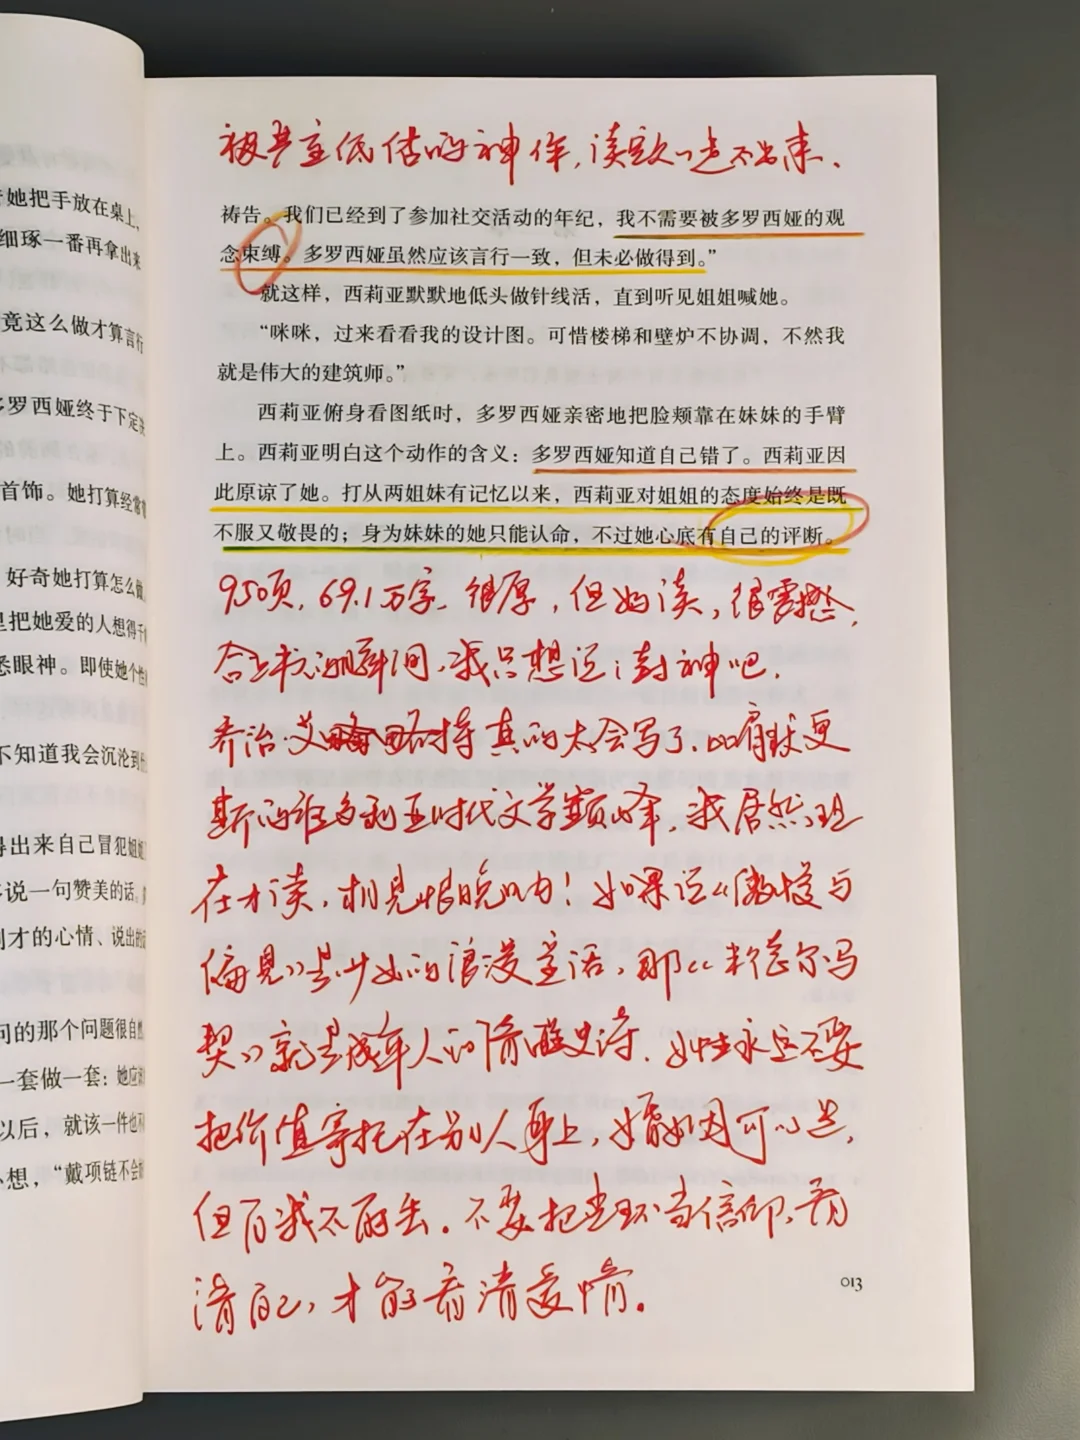 她把手放在桌上，
细琢一番再拿出来
竟这么做才算言行
多罗西娅终于下定决
首饰。她打算经常
好奇她打算怎么做
里把她爱的人想得千
悉眼神。即使她个性
不知道我会沉沦到
得出来自己冒犯姐姐
说一句赞美的话。
刚才的心情、说出的
问的那个问题很自然
一套做一套：她应
以后，就该一件也不
想，“戴项链不会
被严重低估的神作，读完久久走不出来.
祷告。我们已经到了参加社交活动的年纪，我不需要被多罗西娅的观
念束缚。多罗西娅虽然应该言行一致，但未必做得到。”
就这样，西莉亚默默地低头做针线活，直到听见姐姐喊她。
“咪咪，过来看看我的设计图。可惜楼梯和壁炉不协调，不然我
就是伟大的建筑师。”
西莉亚俯身看图纸时，多罗西娅亲密地把脸颊靠在妹妹的手臂
上。西莉亚明白这个动作的含义：多罗西娅知道自己错了。西莉亚因
此原谅了她。打从两姐妹有记忆以来，西莉亚对姐姐的态度始终是既
不服又敬畏的；身为妹妹的她只能认命，不过她心底有自己的评断。
950页，69.1万字，很厚，但好读，很震撼，
合上书的瞬间，我只想说：封神吧.
乔治·艾略特真的太会写了，比肩狄更
斯的维多利亚时代文学巅峰，我居然现
在才读，相见恨晚的！如果说《傲慢与
偏见》是少女的浪漫童话，那《米德尔马
契》就是成年人的清醒史诗. 女性永远不要
把价值寄托在别人身上，婚姻可以选，
但自我不能丢。不要把光环当信仰，看
清自己，才能看清爱情。
013